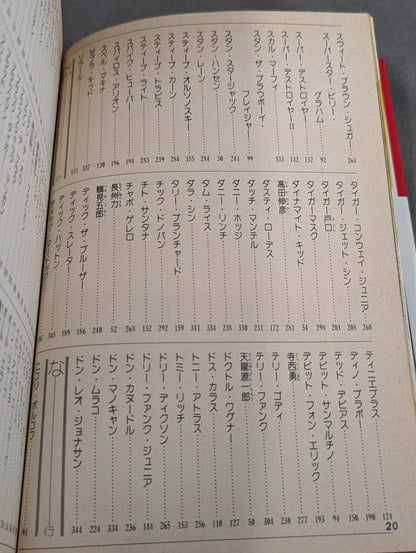 スウィート・ブラウン・シュガー……264
スーパースター・ビリー・
グラハム……92
スーパー・デストロイヤー……132
スーパー・デストロイヤーII……132
スカル・マーフィ……333
スタン・ザ・プラウボーイ・
フレイジャー……99
スタン・スタージャック……244
スタン・ハンセン……30
スタン・レーン……281
スティーブ・オルソノスキー……155
スティーブ・カーン……284
スティーブ・トラビス……239
スティーブ・ライト……283
スパイク・ヒューバー……194
スパイロス・アリオン……196
スペル・マキナ……130
ゼブラ・キッド……337
ソラール……151
タイガー・コンウェイ・ジュニア……260
タイガー・ジェット・シン……201
タイガー戸口……208
タイガーマスク……298
ダイナマイト・キッド……54
高田伸彦……281
ダスティ・ローデス……172
ダッチ・マンテル……231
ダニー・ホッジ……230
ダニー・リンチ……330
タム・ライス……334
ダラ・シン……341
タリー・ブランチャード……159
チック・ドノバン……292
チト・サンタナ……152
チャボ・ゲレロ……268
長州力……52
鶴見五郎……240
ディック・ザ・ブルーザー……186
ディック・スレーター……189
ディック・ハットン……345
ティニエブラス……124
ディノ・ブラボー……190
テッド・デビアス……150
デビット・サンマルチノ……94
デビット・フォン・エリック……193
寺西勇……277
テリー・ゴディ……230
テリー・ファンク……304
天龍源一郎……50
ドクトル・ワグナー……127
ドス・カラス……110
トニー・アトラス……256
トミー・リッチ……153
ドリー・ディクソン……265
ドリー・ファンク・ジュニア……144
ドン・カヌードル……236
ドン・マノキャン……334
ドン・ムラコ……224
ドン・レオ・ジョナサン……344
な行
20